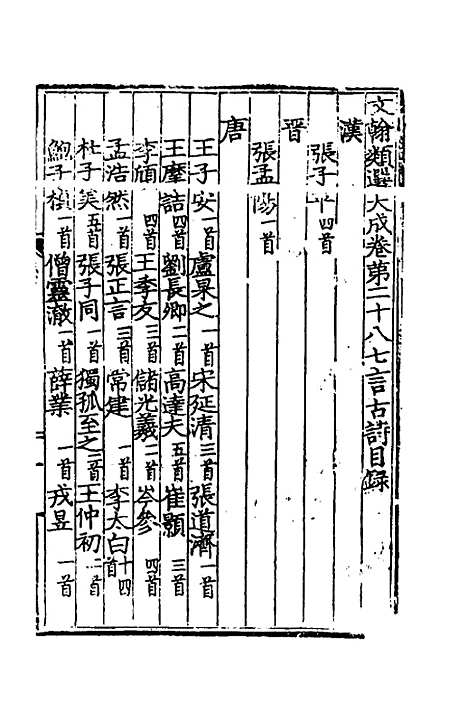 文翰類選大成卷第二十八七言古詩目錄
漢
張子平四首
晋
張孟陽一首
唐
王子安一首盧杲之一首宋延清三首張道濟一首
王摩詰四首劉長卿二首高達夫五首崔顥三首
李頎四首王季友三首儲光羲二首岑參四首
孟浩然一首張正言三首常建一首李太白十四首
杜子美五首張子同一首獨孤至之三首王仲初二首
鮑子楨一首僧靈澈一首薛業一首戎昱一首